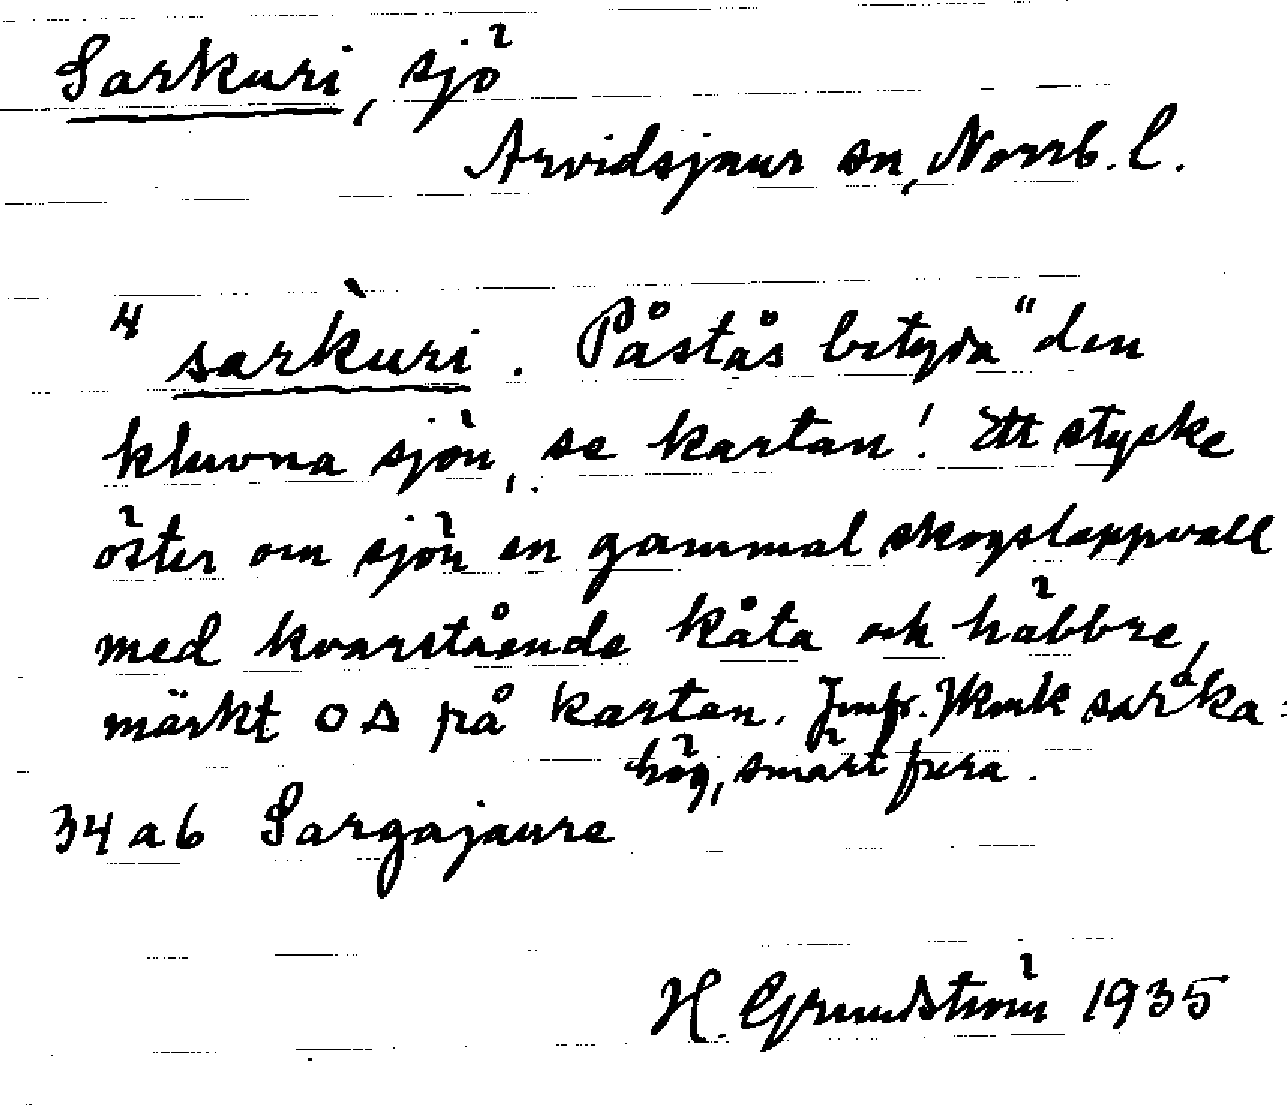 Sarkuri, sjö
Arvidsjaur sn, Norrb. l.
4 sarkùri. Påstås betyda "den
kluvna sjön, se kartan! Ett stycke
öster om sjön en gammal skogslappvall
med kvarstående kåta och häbbre,
märkt O Δ på kartan. Jmfr. Jkmk sarka =
hög, smärt fura.
34 a b Sargajaure
H. Grundström 1935